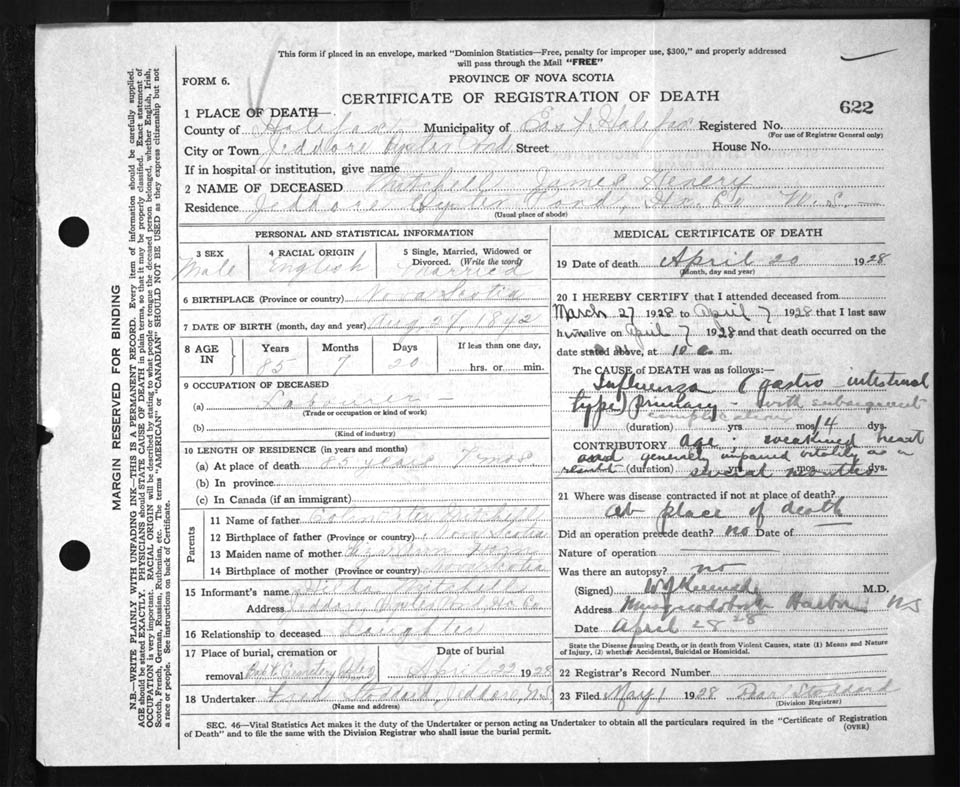 This form if placed in an envelope, marked "Dominion Statistics—Free, penalty for improper use, $300," and properly addressed
will pass through the Mail "FREE"
FORM 6.
PROVINCE OF NOVA SCOTIA
CERTIFICATE OF REGISTRATION OF DEATH
622
1 PLACE OF DEATH—
County of Halifax Municipality of East Halifax Registered No.
(For use of Registrar General only)
City or Town Jeddore Oyster Pond Street House No.
If in hospital or institution, give name
2 NAME OF DECEASED Mitchell James Henery
Residence Jeddore Oyster Pond, Hx. Co N.S.
(Usual place of abode)
PERSONAL AND STATISTICAL INFORMATION
3 SEX 4 RACIAL ORIGIN 5 Single, Married, Widowed or
Divorced. (Write the word)
Male English Married
6 BIRTHPLACE (Province or country) Nova Scotia
7 DATE OF BIRTH (month, day and year) Aug. 27, 1842
8 AGE IN Years Months Days If less than one day,
85 7 20 hrs. or min.
9 OCCUPATION OF DECEASED
(a) Labourer
(Trade or occupation or kind of work)
(b)
(Kind of industry)
10 LENGTH OF RESIDENCE (in years and months)
(a) At place of death 85 years 7 mos.
(b) In province
(c) In Canada (if an immigrant)
Parents
11 Name of father Mitchell
12 Birthplace of father (Province or country) Nova Scotia
13 Maiden name of mother
14 Birthplace of mother (Province or country) Nova Scotia
15 Informant's name Hilda Mitchell
Address Jeddore Oyster Pond Hx Co
16 Relationship to deceased Daughter
17 Place of burial, cremation or Date of burial
removal Bapt. Cemetery April 22 1928
18 Undertaker Stoddard Jeddore, N.S.
(Name and address)
MEDICAL CERTIFICATE OF DEATH
19 Date of death April 20 1928
(Month, day and year)
20 I HEREBY CERTIFY that I attended deceased from
March 27 1928 to April 7 1928 that I last saw
him alive on April 7 1928 and that death occurred on
date stated above, at 10 a.m.
The CAUSE OF DEATH was as follows:
Influenza (gastro intestinal
type) primary - with subsequent
complication
(duration) yrs. mos. 14 dys.
CONTRIBUTORY age. weakened heart
and generally impaired vitality as a
result (duration) yrs. mos. dys.
several months
21 Where was disease contracted if not at place of death?
at place of death
Did an operation precede death? no Date of
Nature of operation
Was there an autopsy? no
(Signed) M.D.
Address Musquodoboit Harbour NS
Date April 28 28
State the Disease causing Death, or in death from Violent Causes, state (1) Means and Nature
of Injury, (2) whether Accidental, Suicidal or Homicidal.
22 Registrar's Record Number
23 Filed May 1 1928 Stoddard
(Division Registrar)
SEC. 46—Vital Statistics Act makes it the duty of the Undertaker or person acting as Undertaker to obtain all the particulars required in the "Certificate of Registration
of Death" and to file the same with the Division Registrar who shall issue the burial permit.
(OVER)
MARGIN RESERVED FOR BINDING
N.B.—WRITE PLAINLY WITH UNFADING INK—THIS IS A PERMANENT RECORD. Every item of information should be carefully supplied.
AGE should be stated EXACTLY. PHYSICIANS should STATE CAUSE OF DEATH in plain terms, so that it may be properly classified. Exact statement of
OCCUPATION is very important. RACIAL ORIGIN will be described by stating to what people or tongue the deceased person belonged, whether English, Irish,
Scotch, French, German, Russian, Ruthenian, etc. The terms "AMERICAN" or "CANADIAN" SHOULD NOT BE USED as they express citizenship but not
a race or people. See instructions on back of Certificate.